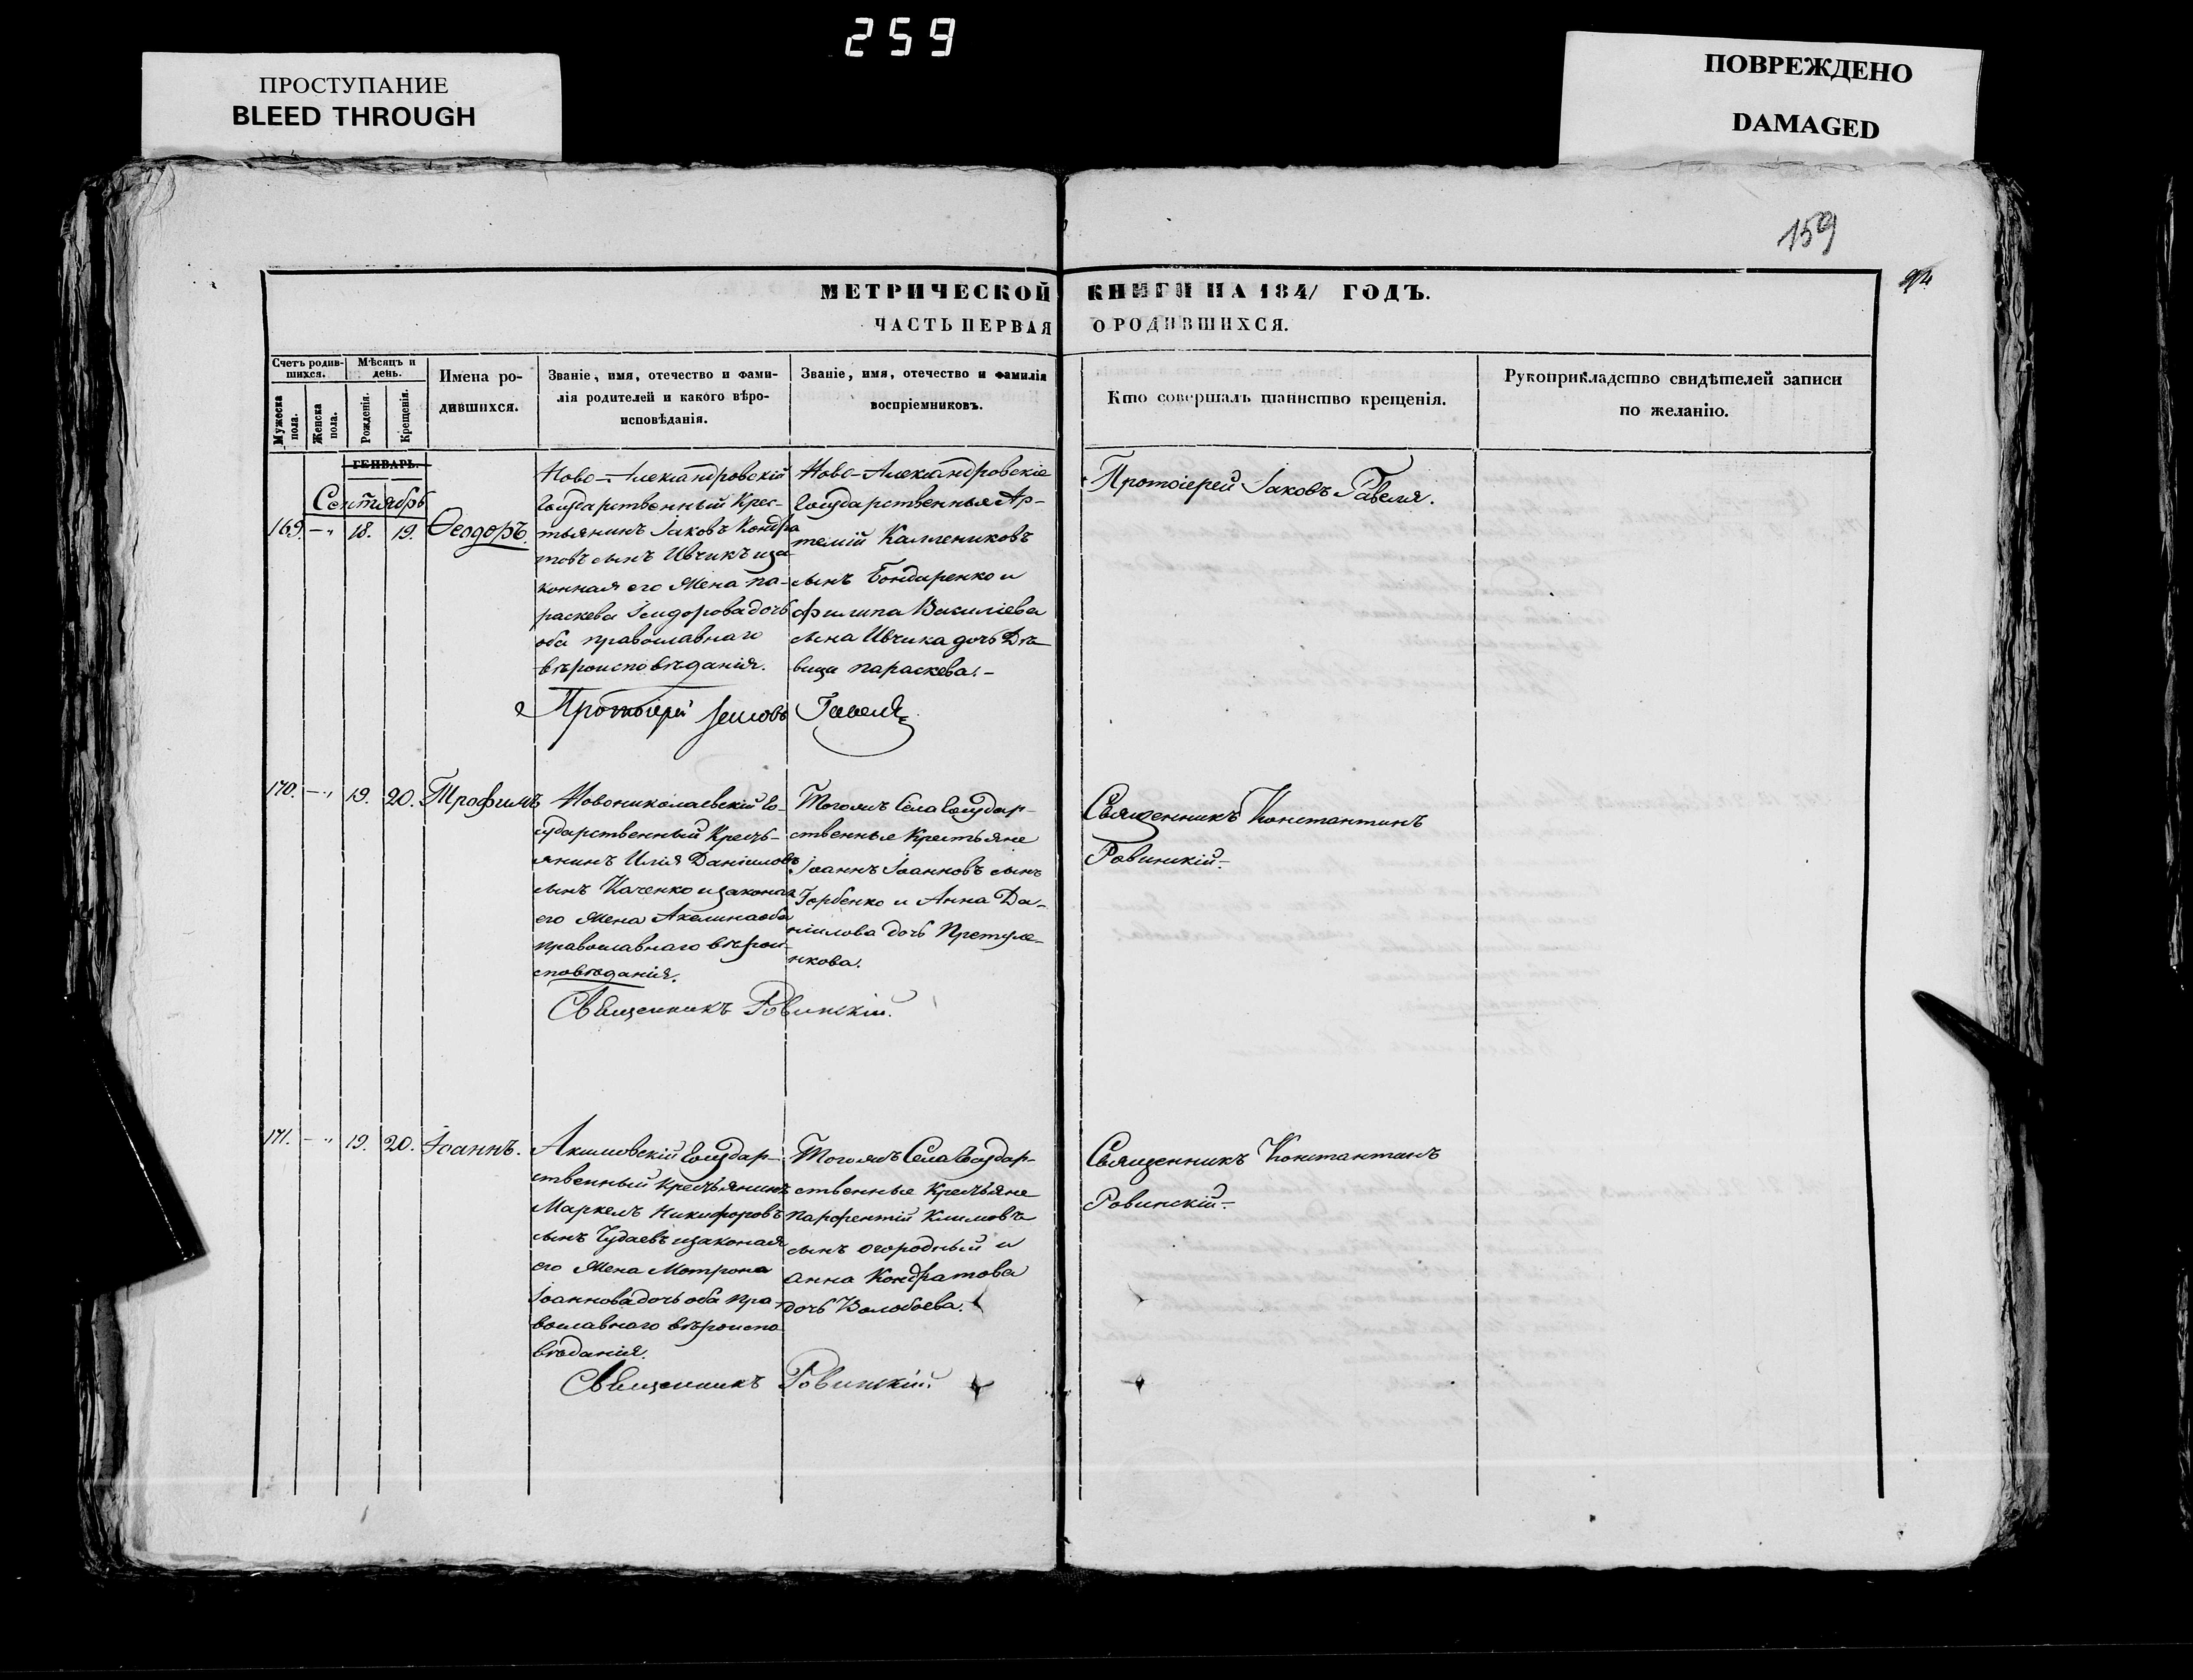 259
ПРОСТУПАНИЕ
BLEED THROUGH
ПОВРЕЖДЕНО
DAMAGED
159
МЕТРИЧЕСКОЙ КНИГИ НА 1841 ГОДЪ.
ЧАСТЬ ПЕРВАЯ О РОДИВШИХСЯ.
Счетъ родив-
шихся.
Мужеска
пола.
Женска
пола.
Мѣсяцъ и
день.
Рожденія.
Крещенія.
Имена ро-
дившихся.
Званіе, имя, отечество и фами-
лія родителей и какого вѣро-
исповѣданія.
Званіе, имя, отечество и фамилія
воспріемниковъ.
Кто совершалъ таинство крещенія.
Рукоприкладство свидѣтелей записи
по желанію.
ГЕНВАРЬ.
Сентябрь
169. — „ 18. 19. Ѳеодоръ.
Ново-Александровскій
Государственный Крес-
тьянинъ Іаковъ Кондра
товъ сынъ Ивчикъ иза-
конная его жена Па-
раскева Ісидорова дочь
оба православнаго
вѣроисповѣданія.
Ново-Александровскіе
Государственныя Ар-
темій Каллениковъ
сынъ Бондаренко и
Филипа Василіева
сына Ивчика дочь Дѣ-
вица параскева.-
Протоіерей Іаковъ Гавеля.
Протоіерей Іаковъ Гавеля
170. — „ 19. 20. Трофимъ
Новониколаевскій Го-
сударственный Кресть-
янинъ Илія Даніиловъ
сынъ Каченко изаконая
его жена Акелина оба
православнаго вѣрои-
сповѣданія.
Тогожъ Села Государ-
ственные Крестьяне
Іоаннъ Іоанновъ сынъ
Горбенко и Анна Да-
ніилова дочь
Священникъ Константинъ
Ровинскій.-
Священникъ Ровинскій.
171. — „ 19. 20. Іоаннъ.
Акимовскій Государ-
ственный Крестьянинъ
Маркелъ Никифоровъ
сынъ Чудаевъ изаконая
его жена Мотрона
Іоаннова дочь оба пра-
вославнаго вѣроиспо
вѣданія.
Тогожъ Села Государ-
ственные Крестьяне
Парфентій Климовъ
сынъ огородный и
анна Кондратова
дочь Волобоева.
Священникъ Константинъ
Ровинскій.-
Священникъ Ровинскій.